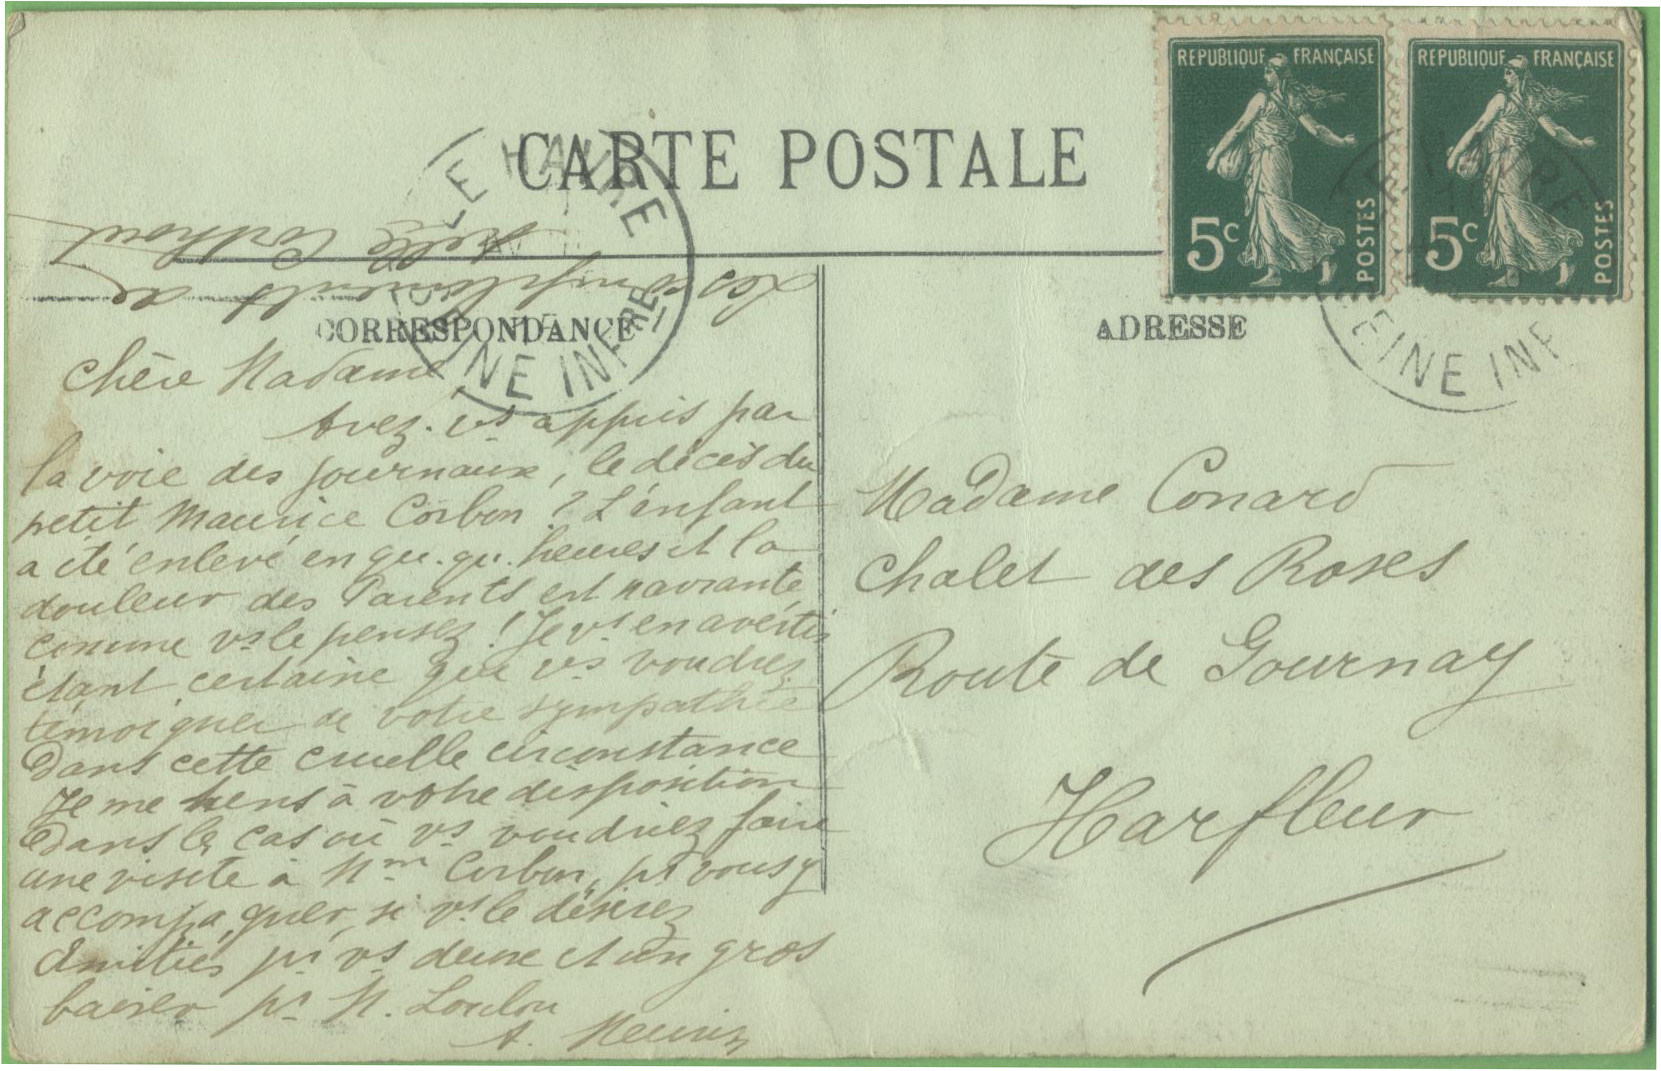 CARTE POSTALE
REPUBLIQUE FRANÇAISE
5c
POSTES
REPUBLIQUE FRANÇAISE
5c
POSTES
LE HAVRE
SEINE INFRE
LE HAVRE
SEINE INF
Les compliments de
Melle
CORRESPONDANCE
ADRESSE
Chère Madame,
Avez-vs appris par
la voie des journaux, le décès du
petit Maurice Corbon ? L'enfant
a été enlevé en qu.qu. heures et la
douleur des Parents est navrante
comme vs le pensez ! Je vs en avertis
étant certaine que vs voudrez
témoigner de votre sympathie
dans cette cruelle circonstance
Je me tiens à votre disposition
dans le cas où vs voudriez faire
une visite à Mme Corbon, pr vous y
accompagner, si vs le désirez
Amitiés pr vs deux et un gros
baiser pr M. Loulou
A.
Madame Conard
Chalet des Roses
Route de Gournay
Harfleur